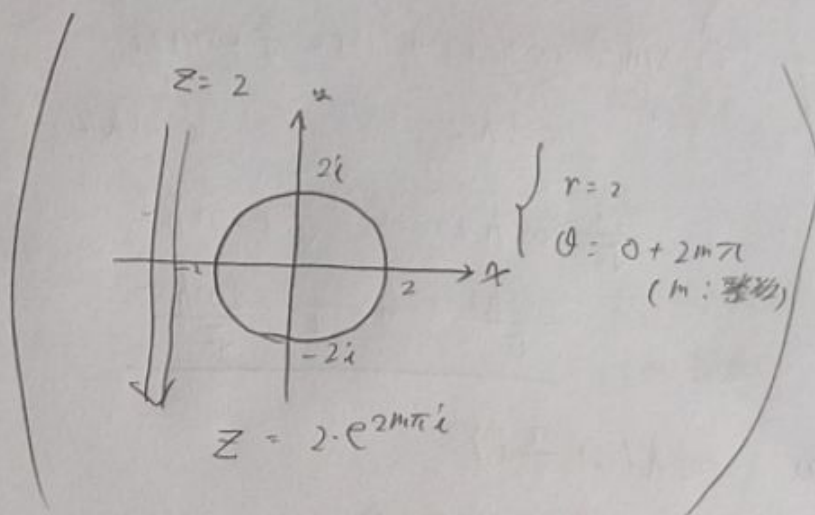 Z = 2
2i
-2
2
x
-2i
r = 2
θ = 0 + 2mπ
(m : 整数)
Z = 2・e^{2mπi}